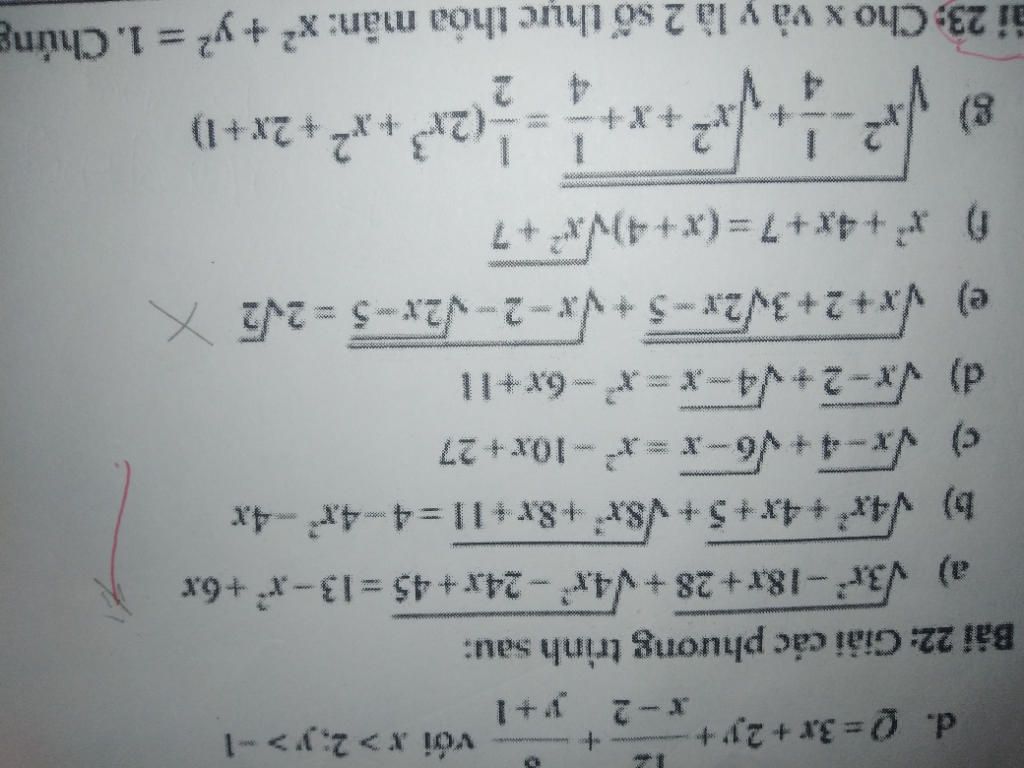 d. Q = 3x + 2y + 12/(x − 2) + 8/(y + 1) với x > 2; y > −1
Bài 22: Giải các phương trình sau:
a) √(3x² − 18x + 28) + √(4x² − 24x + 45) = 13 − x² + 6x
b) √(4x² + 4x + 5) + √(8x² + 8x + 11) = 4 − 4x² − 4x
c) √(x − 4) + √(6 − x) = x² − 10x + 27
d) √(x − 2) + √(4 − x) = x² − 6x + 11
e) √(x + 2 + 3√(2x − 5)) + √(x − 2 − √(2x − 5)) = 2√2
f) x² + 4x + 7 = (x + 4)√(x² + 7)
g) √(x² − 1/4 + √(x² + x + 1/4)) = 1/2(2x³ + x² + 2x + 1)
ài 23: Cho x và y là 2 số thực thỏa mãn: x² + y² = 1. Chứng